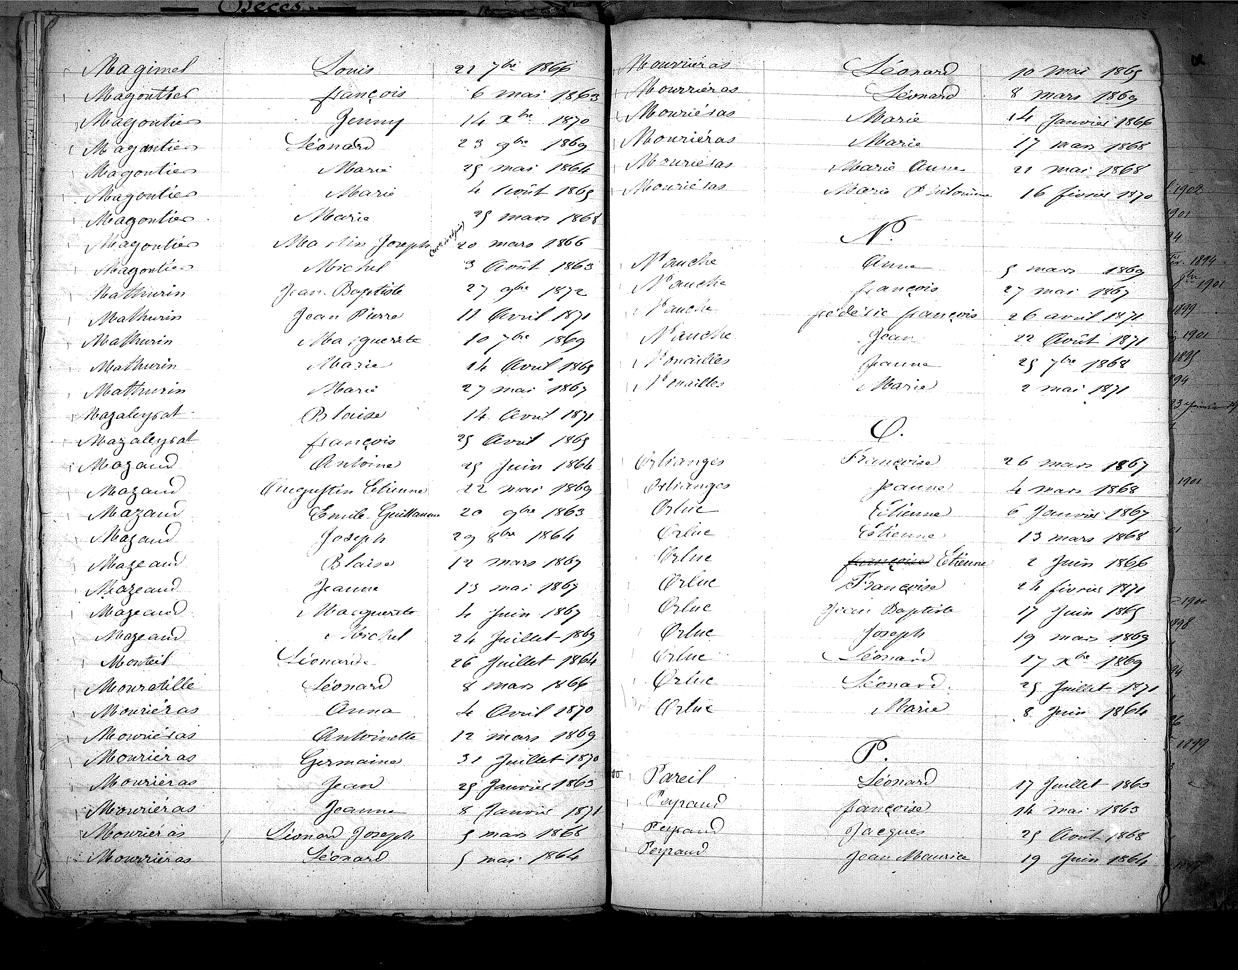 Décès.
Magimel Louis 22 7bre 1866
Magoutier françois 6 mai 1863
Magoutier Jenny 14 Xbre 1870
Magoutier Léonard 23 9bre 1869
Magoutier Marie 25 mai 1864
Magoutier Marie 4 Août 1865
Magoutier Marie 25 mars 1868
Magoutier Martin Joseph 20 mars 1866
Magoutier Michel 3 Août 1863
Mathurin Jean Baptiste 27 9bre 1872
Mathurin Jean Pierre 11 Avril 1871
Mathurin Marguerite 10 7bre 1869
Mathurin Marie 14 Avril 1865
Mathurin Marie 27 mai 1867
Mazaleyrat Blaise 14 Avril 1871
Mazaleyrat françois 25 Avril 1865
Mazaud Antoine 25 Juin 1864
Mazaud Augustin Etienne 22 mai 1869
Mazaud Emile Guillaume 20 9bre 1863
Mazaud Joseph 29 8bre 1864
Mazeaud Blaise 12 mars 1867
Mazeaud Jeanne 13 mai 1867
Mazeaud Marguerite 4 Juin 1867
Mazeaud Michel 24 Juillet 1869
Monteil Léonarde 26 Juillet 1864
Mouratille Léonard 8 mars 1866
Mouriéras Anna 4 Avril 1870
Mouriéras Antoinette 12 mars 1869
Mouriéras Germaine 31 Juillet 1870
Mouriéras Jean 25 Janvier 1863
Mouriéras Jeanne 8 Janvier 1871
Mouriéras Léonard Joseph 5 mars 1868
Mourriéras Léonard 5 mai 1864
Mourriéras Léonard 10 mai 1865
Mourriéras Léonard 8 mars 1869
Mouriéras Marie 14 Janvier 1866
Mouriéras Marie 17 mars 1868
Mouriéras Marie Anne 21 mai 1868
Mouriéras Marie Antonine 16 février 1870
N.
Nauche Anne 5 mars 1869
Nauche françois 27 mai 1867
Nauche fréderic françois 26 avril 1871
Nauche Jean 22 Août 1871
Noailles Jeanne 25 7bre 1868
Noailles Marie 2 mai 1871
O.
Orlianges Françoise 26 mars 1867
Orlianges Jeanne 4 mars 1868
Orluc Etienne 6 Janvier 1867
Orluc Etienne 13 mars 1868
Orluc françoise Etienne 2 Juin 1866
Orluc Françoise 24 février 1871
Orluc Jean Baptiste 17 Juin 1865
Orluc Joseph 19 mars 1869
Orluc Léonard 17 Xbre 1869
Orluc Léonard. 25 Juillet 1871
Orluc Marie 8 Juin 1864
P.
Pareil Léonard 17 Juillet 1863
Peyraud françoise 14 mai 1863
Peyraud Jacques 25 Août 1868
Peyraud Jean Maurice 19 Juin 1864